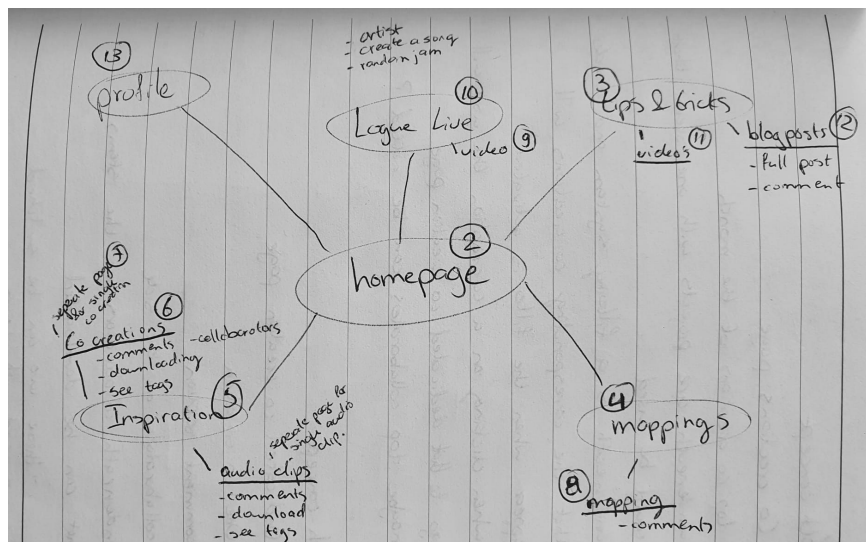 13
profile
- artist
- create a song
- random jam
10
Logue Live
video 9
3
tips & tricks
videos 11
blogposts 12
- full post
- comment
2
homepage
7
- seperate page
for single
co creation
6
Co creations
- comments - collaborators
- downloading
- see tags
5
Inspiration
- seperate page for
single audio
clip.
audio clips
- comments
- download
- see tags
4
mappings
8
mapping
- comments